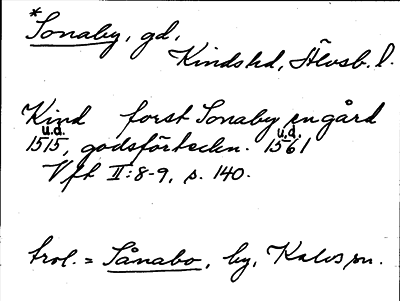 *Sonaby, gd,
Kindshd, Älvsb. l.
Kind forst Sonaby en gård
u.d. u.d.
1515, godsförteckn. 1561
Vft II:8-9, s. 140.
trol. = Sånabo, by, Kalvs sn.